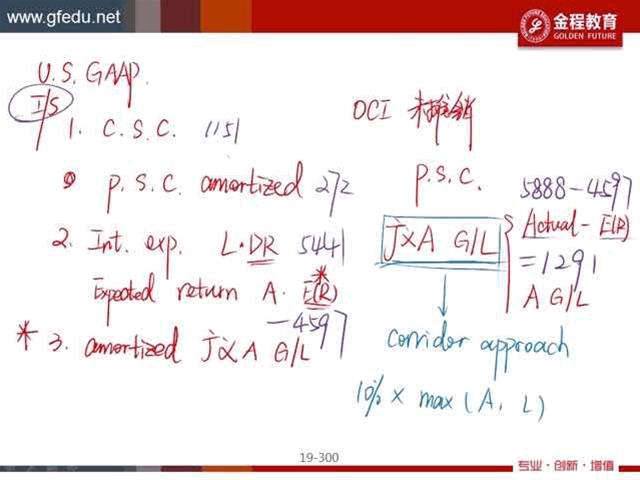 www.gfedu.net
金程教育
GOLDEN FUTURE
U.S. GAAP.
I/S
1. C.S.C. 1151
P.S.C. amortized 272
2. Int. exp. L·DR 5441
Expected return A. E(R)
-4597
* 3. amortized 精算 A G/L
OCI 未摊销
P.S.C.
精算 A G/L
5888-4597
Actual - E(R)
=1291
A G/L
corridor approach
10% × max (A, L)
19-300
专业·创新·增值